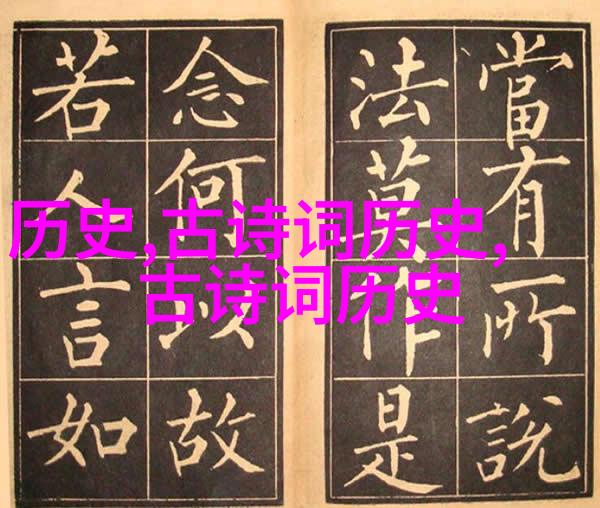 當有所說
法莫作是
念何以故
若人言如
历史,古诗词历史,
古诗词历史